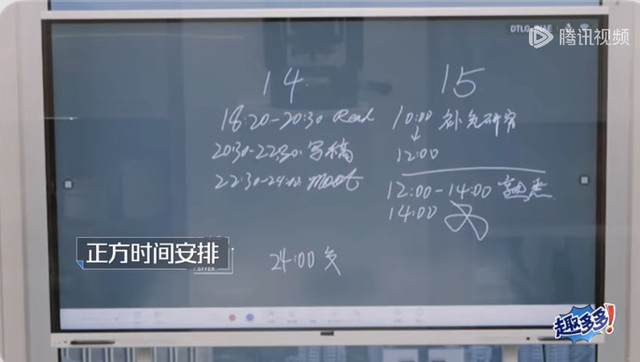 腾讯视频
14 15
18:20-20:30 Read
20:30-22:30 写稿
22:30-24:00 moot
24:00
10:00 补充研究
↓
12:00
12:00-14:00 熟悉
14:00
正方时间安排
OFFER
趣多多!